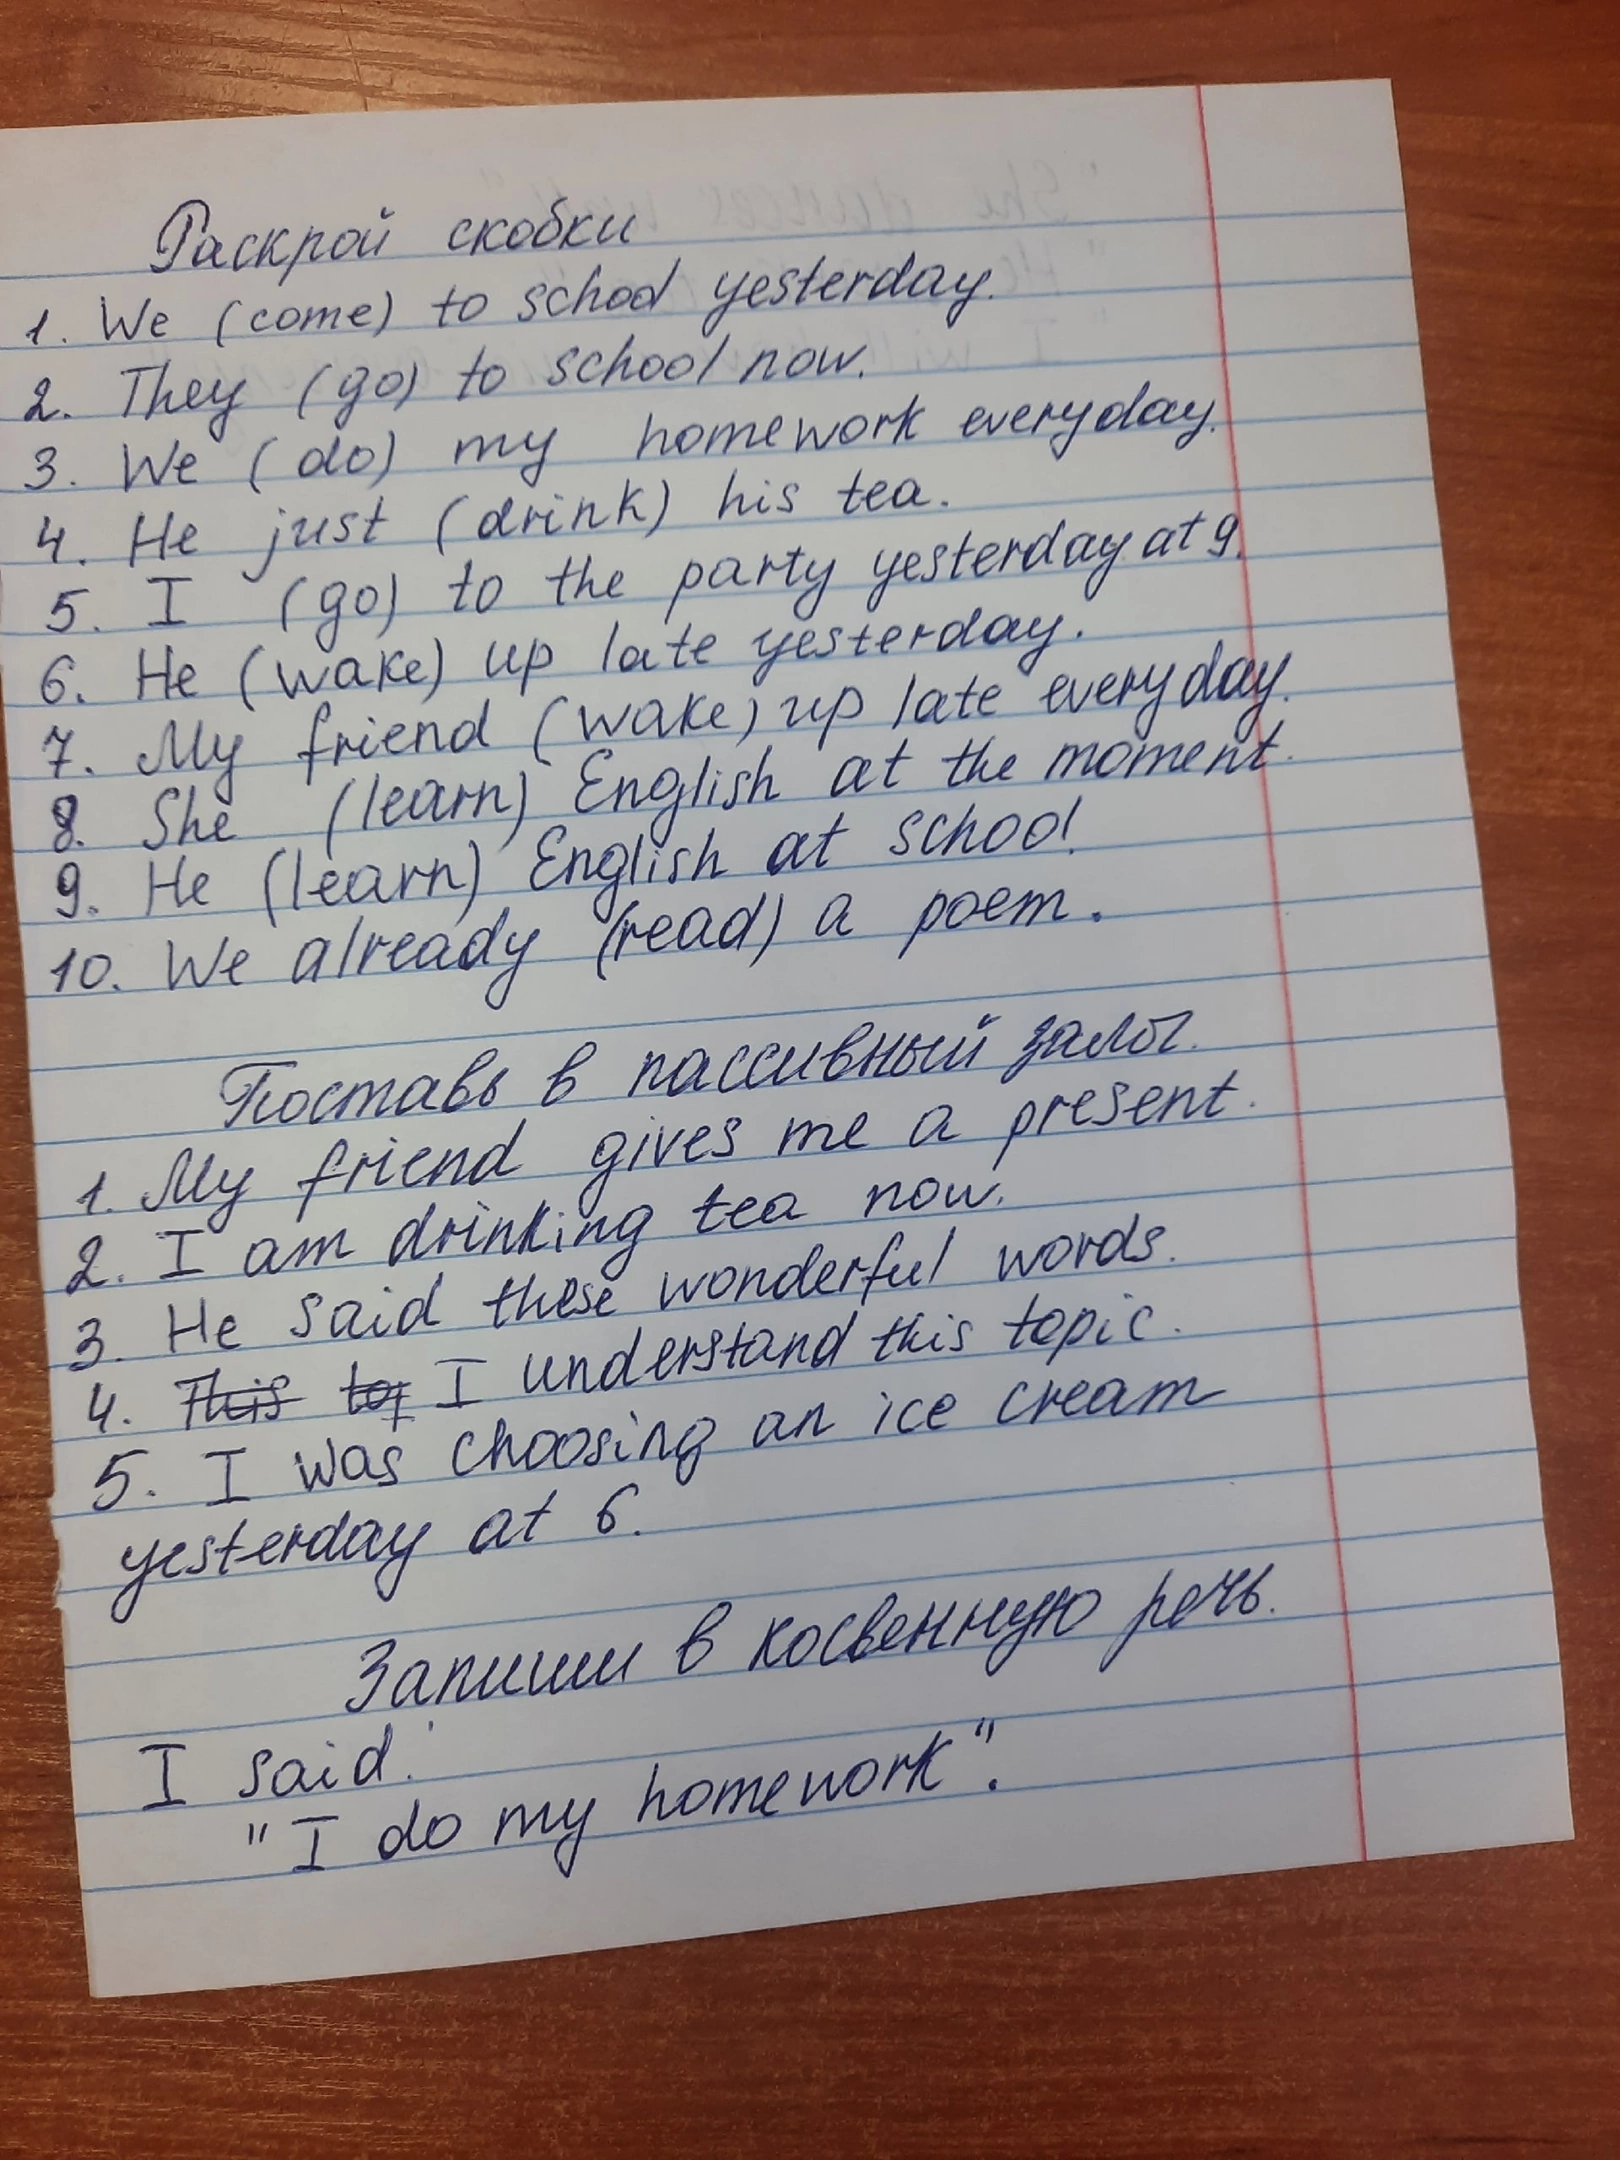 Раскрой скобки
1. We (come) to school yesterday.
2. They (go) to school now.
3. We (do) my homework everyday.
4. He just (drink) his tea.
5. I (go) to the party yesterday at 9.
6. He (wake) up late yesterday.
7. My friend (wake) up late everyday.
8. She (learn) English at the moment.
9. He (learn) English at school.
10. We already (read) a poem.
Поставь в пассивный залог.
1. My friend gives me a present.
2. I am drinking tea now.
3. He said these wonderful words.
4. This top I understand this topic.
5. I was choosing an ice cream
yesterday at 6.
Запиши в косвенную речь.
I said:
"I do my homework".